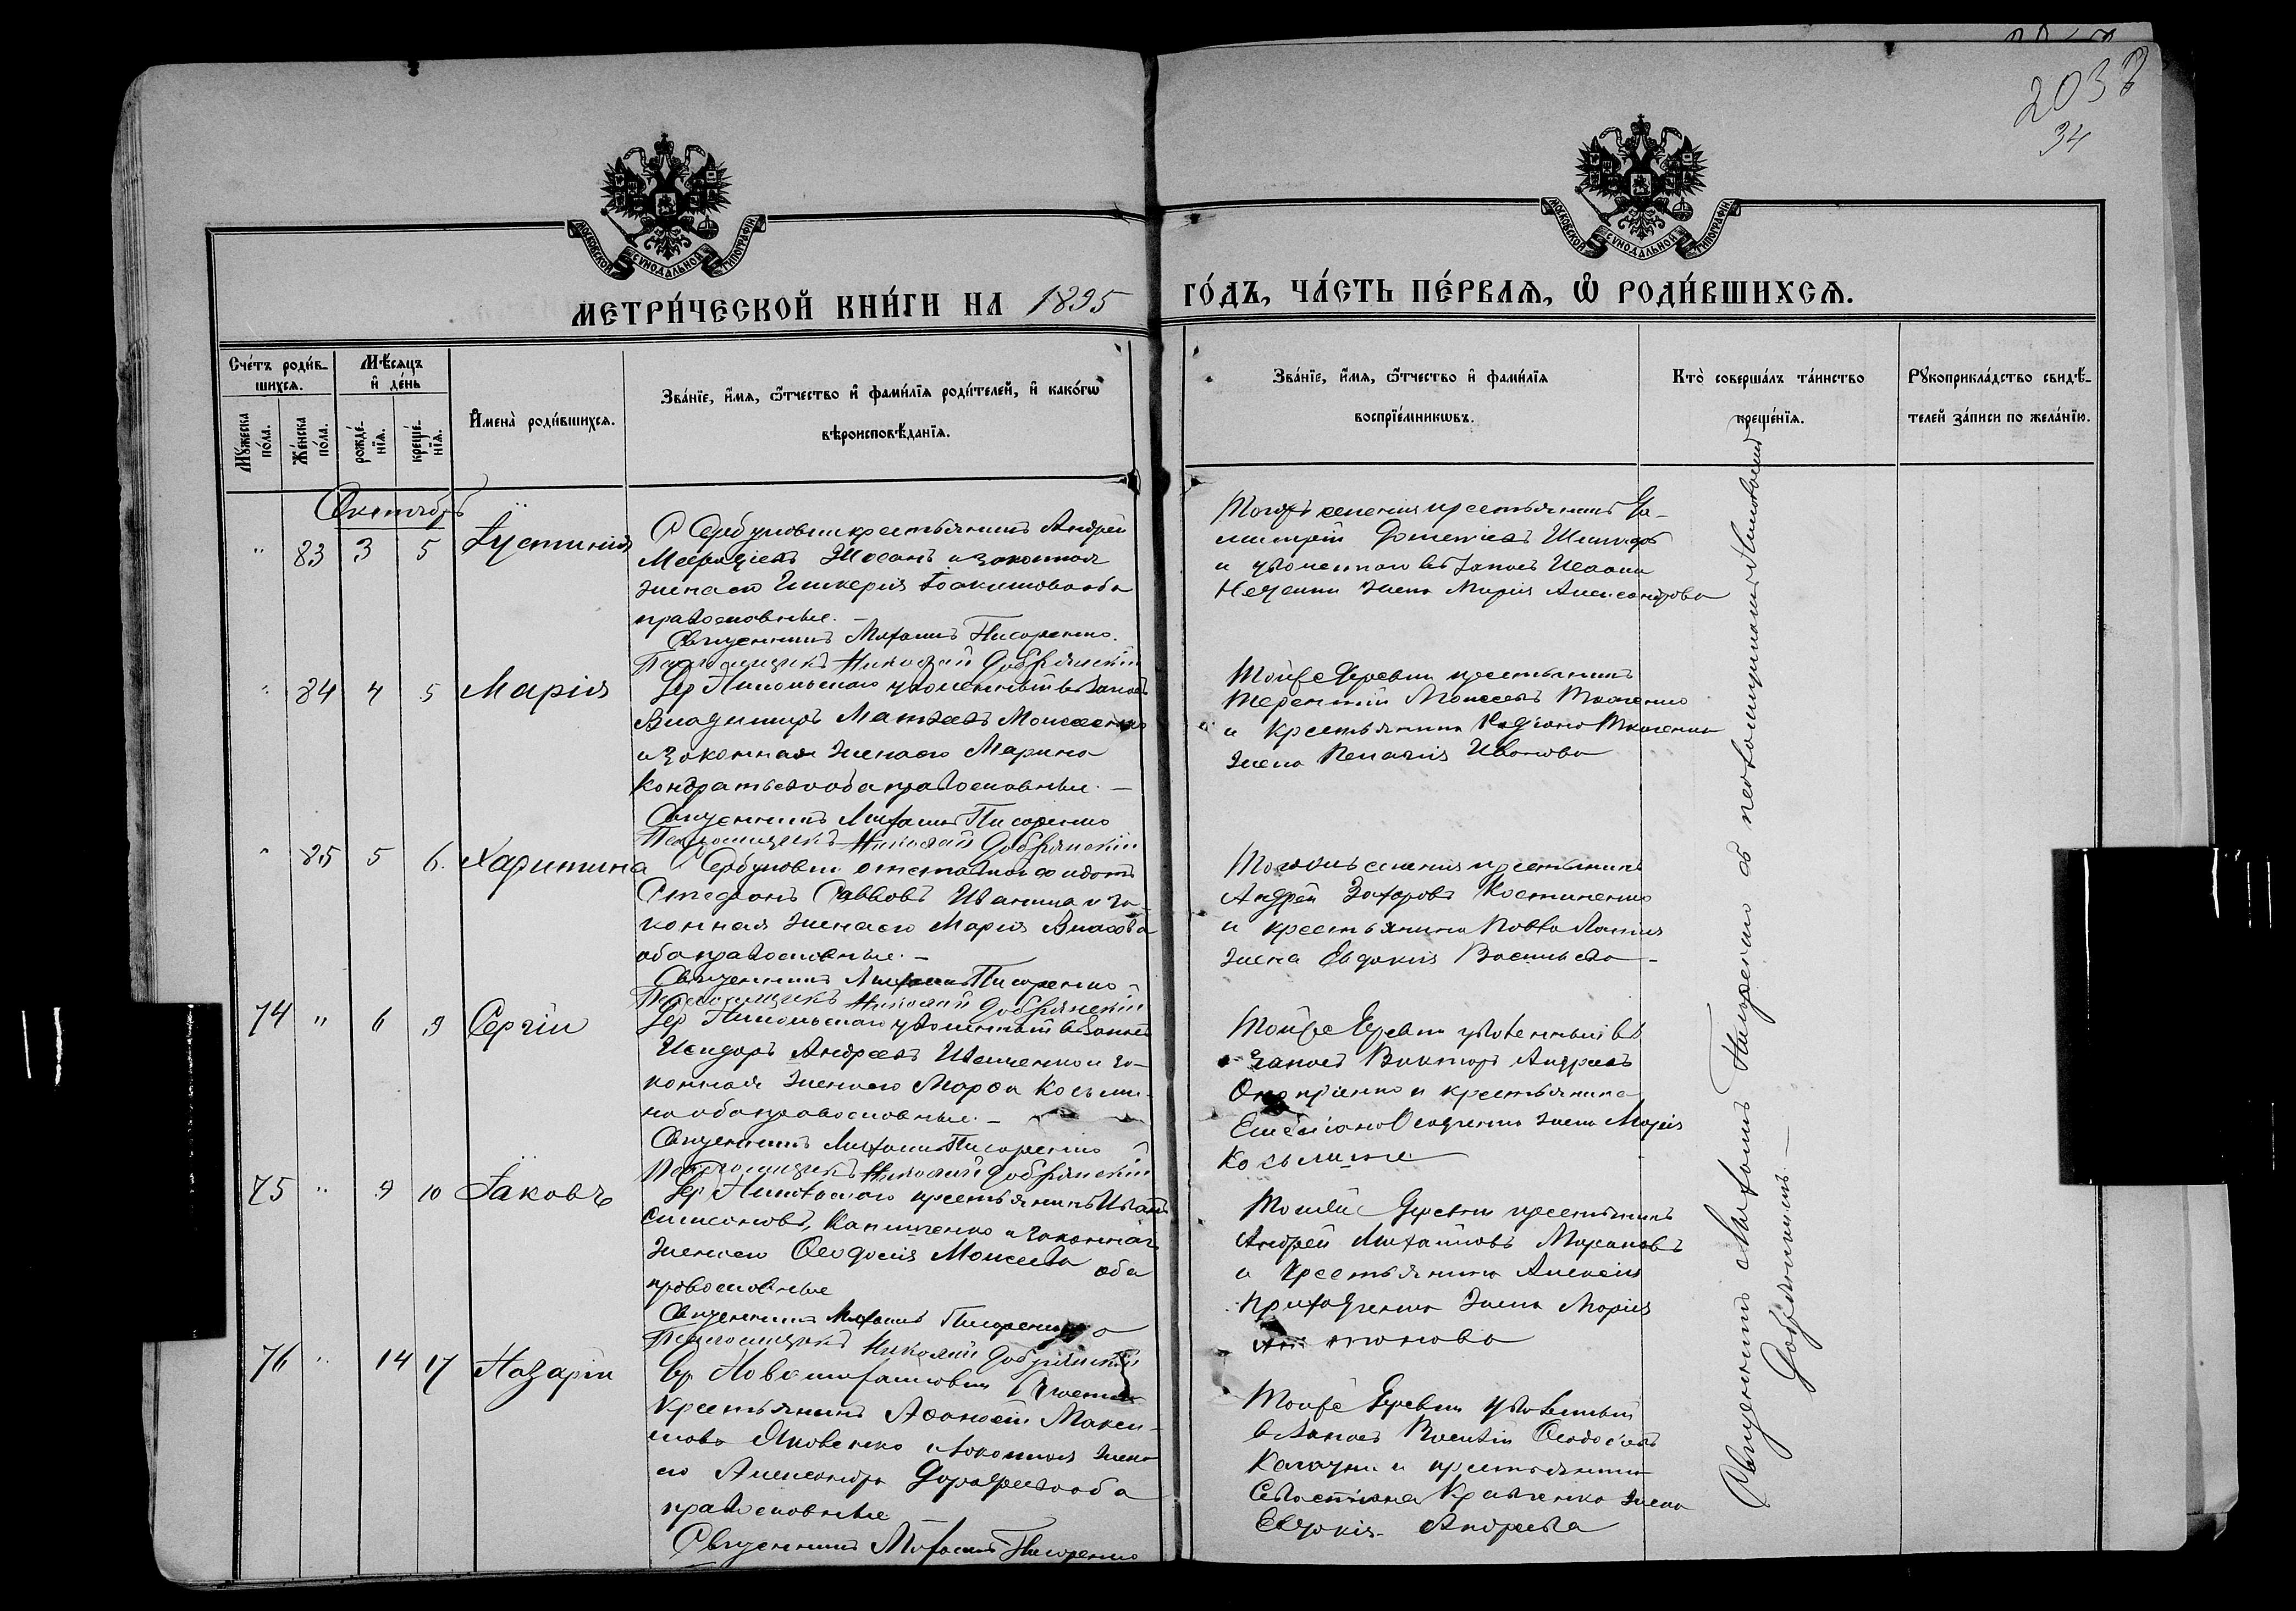 2038
34
МОСКОВСКОЙ СѴНОДАЛЬНОЙ ТИПОГРАФІИ
МОСКОВСКОЙ СѴНОДАЛЬНОЙ ТИПОГРАФІИ
МЕТРИ́ЧЕСКОЙ КНИ́ГИ НА 1895
ГО́ДЪ, ЧА́СТЬ ПЕ́РВАЯ, Ѽ РОДИ́ВШИХСЯ.
Сче́тъ роди́в-
шихся.
Мꙋжеска по́ла.
Же́нска по́ла.
Мѣ́сяцъ
и҆ де́нь
рожде́-
нїя.
креще́-
нїя.
И҆мена̀ роди́вшихся.
Зва́нїе, и҆́мя, ѻ҆́тчество и҆ фами́лїя роди́телей, и҆ како́гѡ
вѣроисповѣ́данїя.
Зва́нїе, и҆́мя, ѻ҆́тчество и҆ фами́лїя
воспрїе́мникѡвъ.
Кто̀ соверша́лъ та́инство
креще́нїя.
Рꙋкоприкла́дство свидѣ́-
телей за́писи по жела́нїю.
Октябрь
" 83 3 5 Іустинія
С Сербуловки крестьянинъ Андрей
и законная
жена его Гликерія Іоакимова оба
православные. –
Священникъ Михаилъ Писаренко.
Псаломщикъ Николай Добрянскій
Тогоже селенія крестьянинъ Ди-
митрій
и уволеннаго въ запасъ Іоанна
жена Марія Александрова
" 84 4 5 Марія
Дер Никольскаго уволенный въ запасъ
Владимиръ Матѳеевъ Моисеенко
и законная жена его Марина
Кондратьева оба православные. –
Священникъ Михаилъ Писаренко
Псаломщикъ Николай Добрянскій
Тойже деревни крестьянинъ
Терентій Моисеевъ Ткаченко
и крестьянина Родіона Ткаченка
жена Пелагія Иванова
" 85 5 6. Харитина
С Сербуловки отставной солдатъ
Стефанъ Саввовъ Иваница и за-
конная жена его Марія Власова
оба православные. –
Священникъ Михаилъ Писаренко
Псаломщикъ Николай Добрянскій
Тогоже селенія крестьянинъ
Андрей Захаровъ Костиненко
и крестьянина Павла
жена Евдокія Васильева –
74 " 6 9 Сергій
Дер Никольскаго уволенный въ запасъ
Исидоръ Андреевъ Иващенко и за-
конная жена его Марѳа Косьми-
на оба православные. –
Священникъ Михаилъ Писаренко
Псаломщикъ Николай Добрянскій
Тойже деревни уволенный въ
запасъ Викторъ Андреевъ
Оноприенко и крестьянина
жена Марія
Косьмина
75 " 9 10 Іаковъ
Дер крестьянинъ Иванъ
Симеоновъ и законная
жена его Ѳеодосія Моисеева оба
православные
Священникъ Михаилъ Писаренко
Псаломщикъ Николай Добрянскій
Тойже деревни крестьянинъ
Андрей Михайловъ
и крестьянина Алексія
Приходченка жена Марія
Антонова
76 " 14 17 Назарій
Др Новомихайловки
Крестьянинъ Аѳанасій Макси-
мовъ Яковенко и законная жена
его Александра Дорофеева оба
православные
Священникъ Михаилъ Писаренко
Тойже деревни уволенный
въ запасъ Василій Ѳеодосіевъ
и крестьянина
Севастіана Кравченко жена
Евдокія Андреева
Священникъ Михаилъ Писаренко съ псаломщикомъ Николаемъ
Добрянскимъ. –